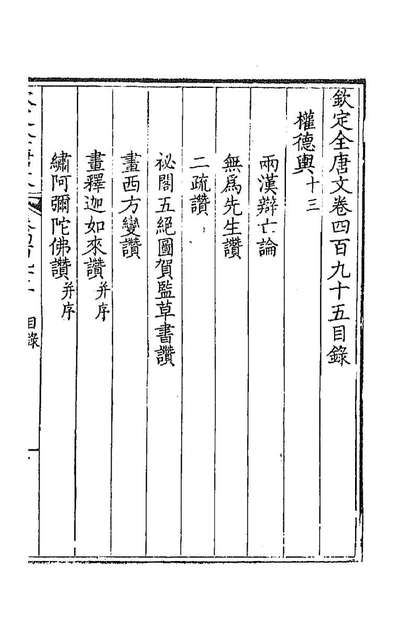 欽定全唐文卷四百九十五目錄
權德輿十三
兩漢辯亡論
無為先生讚
二疏讚
祕閣五絕圖賀監草書讚
畫西方變讚
畫釋迦如來讚并序
繡阿彌陀佛讚并序
目錄